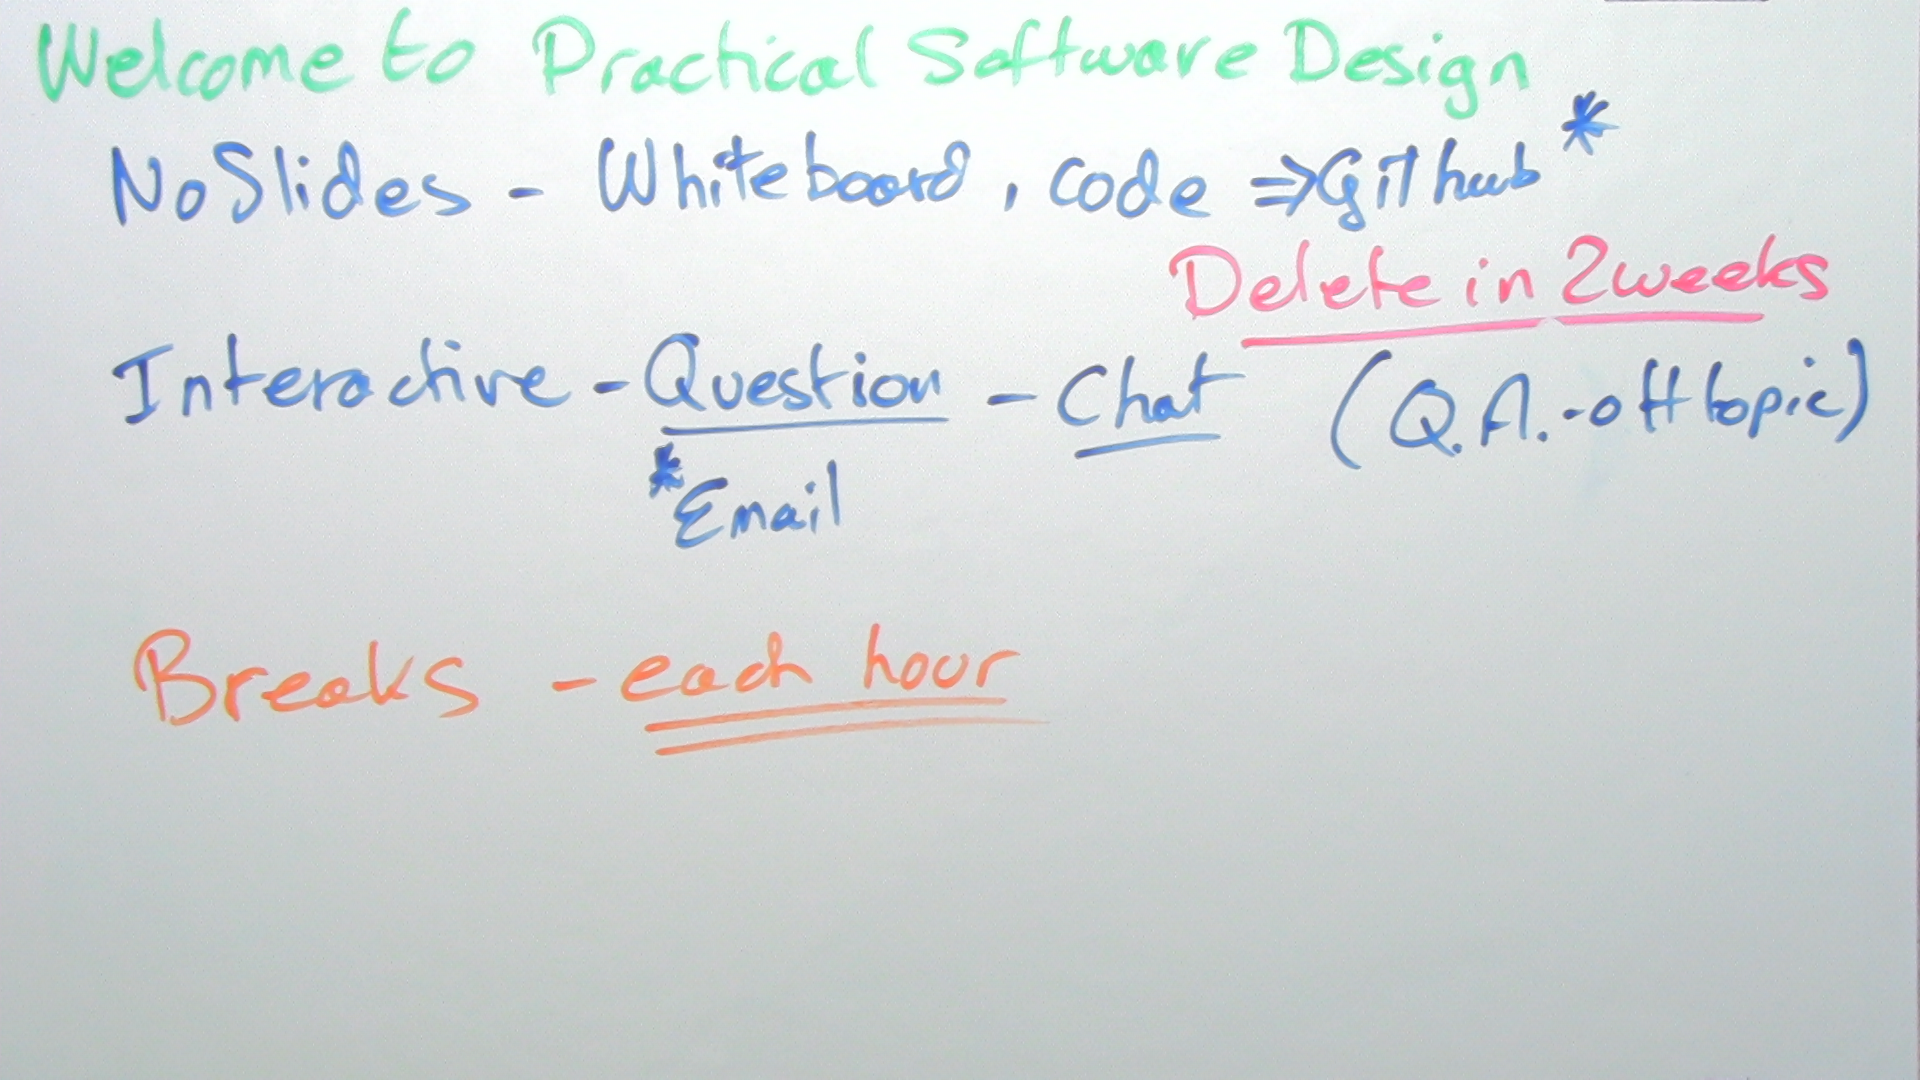 Welcome to Practical Software Design
No Slides - Whiteboard, code ⇒ Github *
Delete in 2 weeks
Interactive - Question - Chat (Q.A. - off topic)
* Email
Breaks - each hour